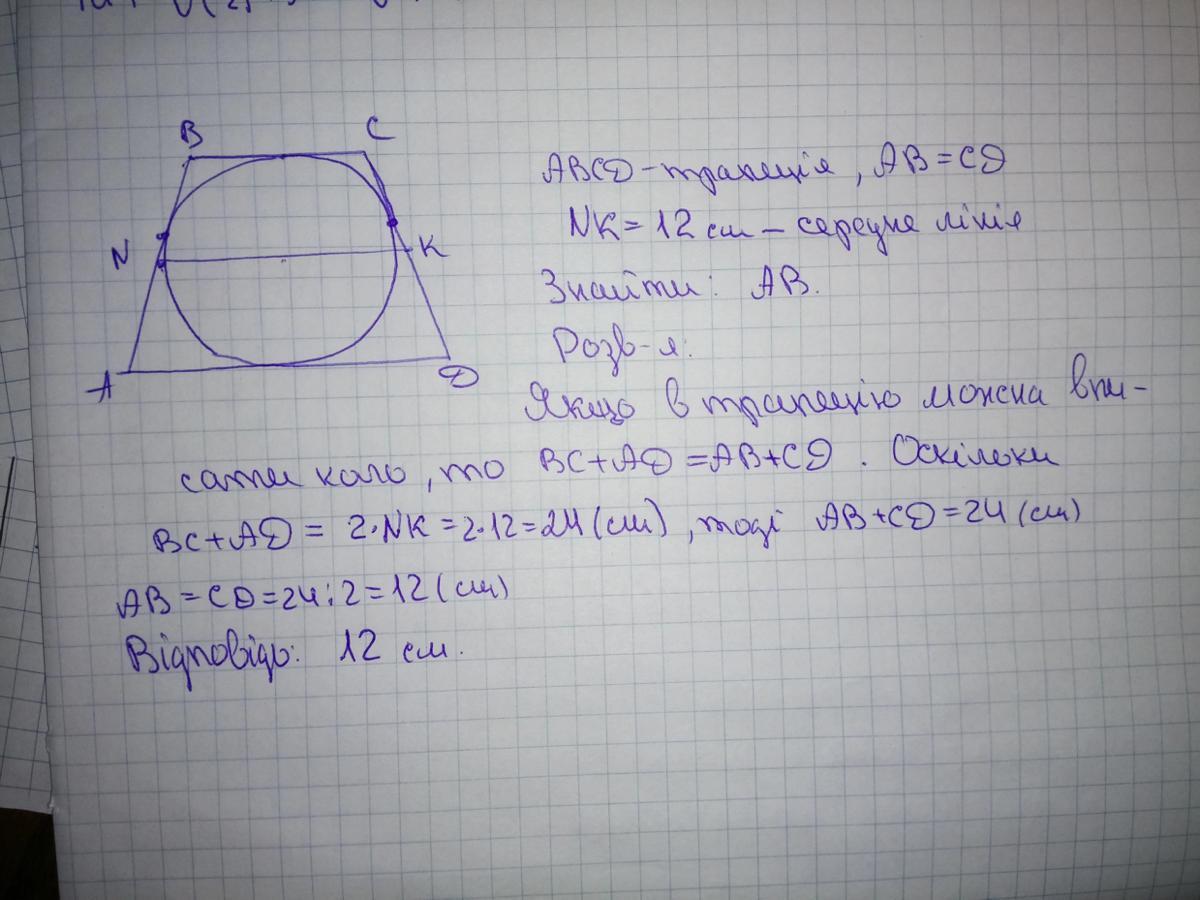 B C
N K
A D
ABCD - трапеція, AB = CD
NK = 12 см - середня лінія
Знайти: AB.
Розв-я:
Якщо в трапецію можна впи-
сати коло, то BC + AD = AB + CD. Оскільки
BC + AD = 2·NK = 2·12 = 24 (см), тоді AB + CD = 24 (см)
AB = CD = 24 : 2 = 12 (см)
Відповідь: 12 см.